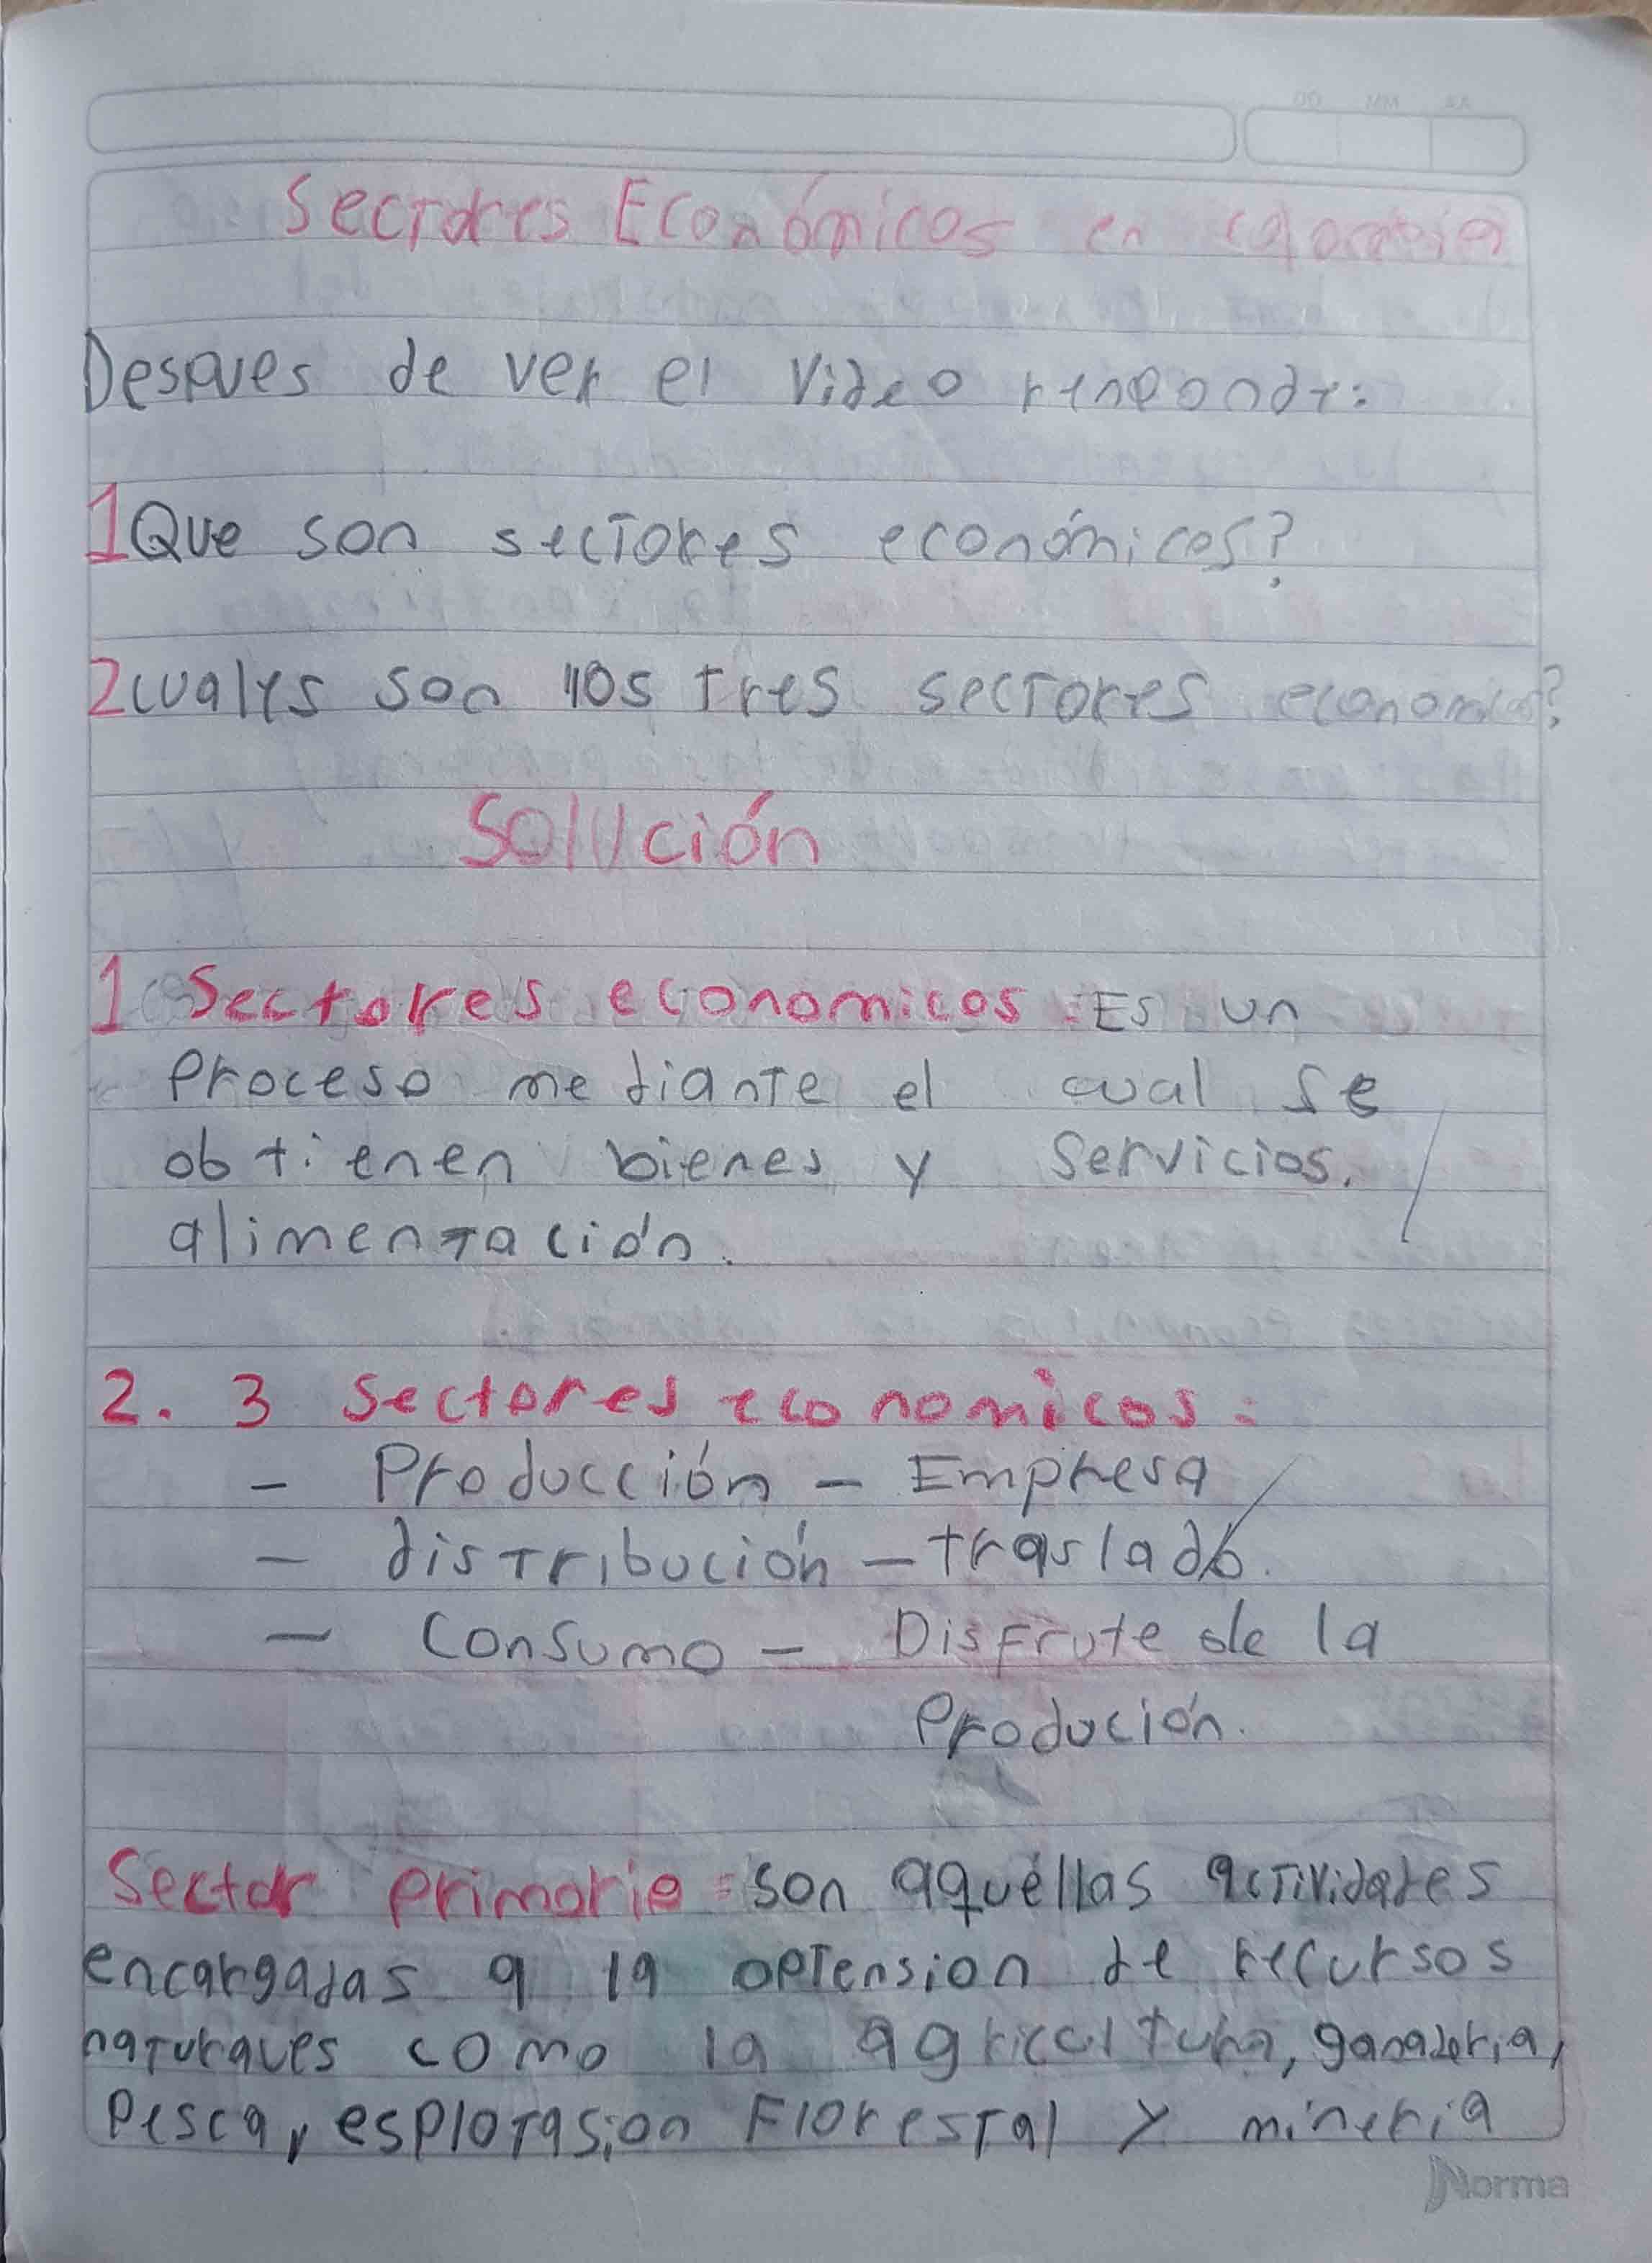 DD MM AA
Sectores Económicos en colombia
Despues de ver el Video responde:
1 Que son sectores económicos?
2 cuales son los tres sectores economicos?
Solución
1 Sectores economicos: Es un
proceso mediante el cual se
obtienen bienes y servicios.
alimentación.
2. 3 sectores economicos:
- Producción - Empresa
- distribución - traslado.
- Consumo - Disfrute de la
Produción.
Sector primario: son aquéllas actividades
encargadas a la optension de recursos
naturaues como la agricultura, ganaderia,
Pesca, esplotasion Florestal y mineria
Norma